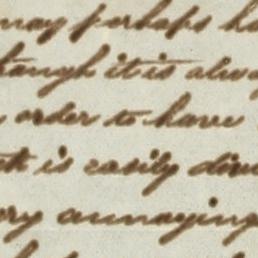 may perhaps ha
though it is alway
order to have
is easily div
ory annoying